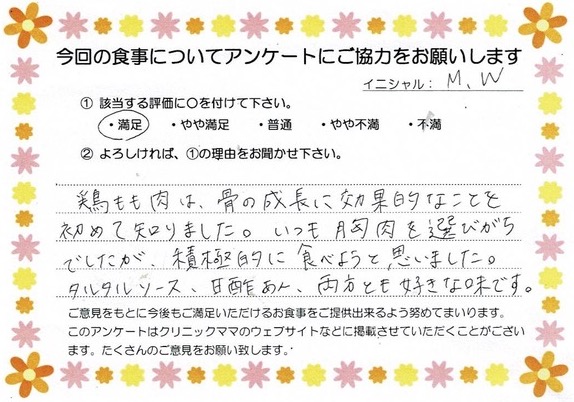 今回の食事についてアンケートにご協力をお願いします
イニシャル： M、W
① 該当する評価に○を付けて下さい。
・満足 ・やや満足 ・普通 ・やや不満 ・不満
② よろしければ、①の理由をお聞かせ下さい。
鶏もも肉は、骨の成長に効果的なことを
初めて知りました。いつも胸肉を選びがち
でしたが、積極的に食べようと思いました。
タルタルソース、甘酢あん、両方とも好きな味です。
ご意見をもとに今後もご満足いただけるお食事をご提供出来るよう努めてまいります。
このアンケートはクリニックママのウェブサイトなどに掲載させていただくことがござい
ます。たくさんのご意見をお願い致します。